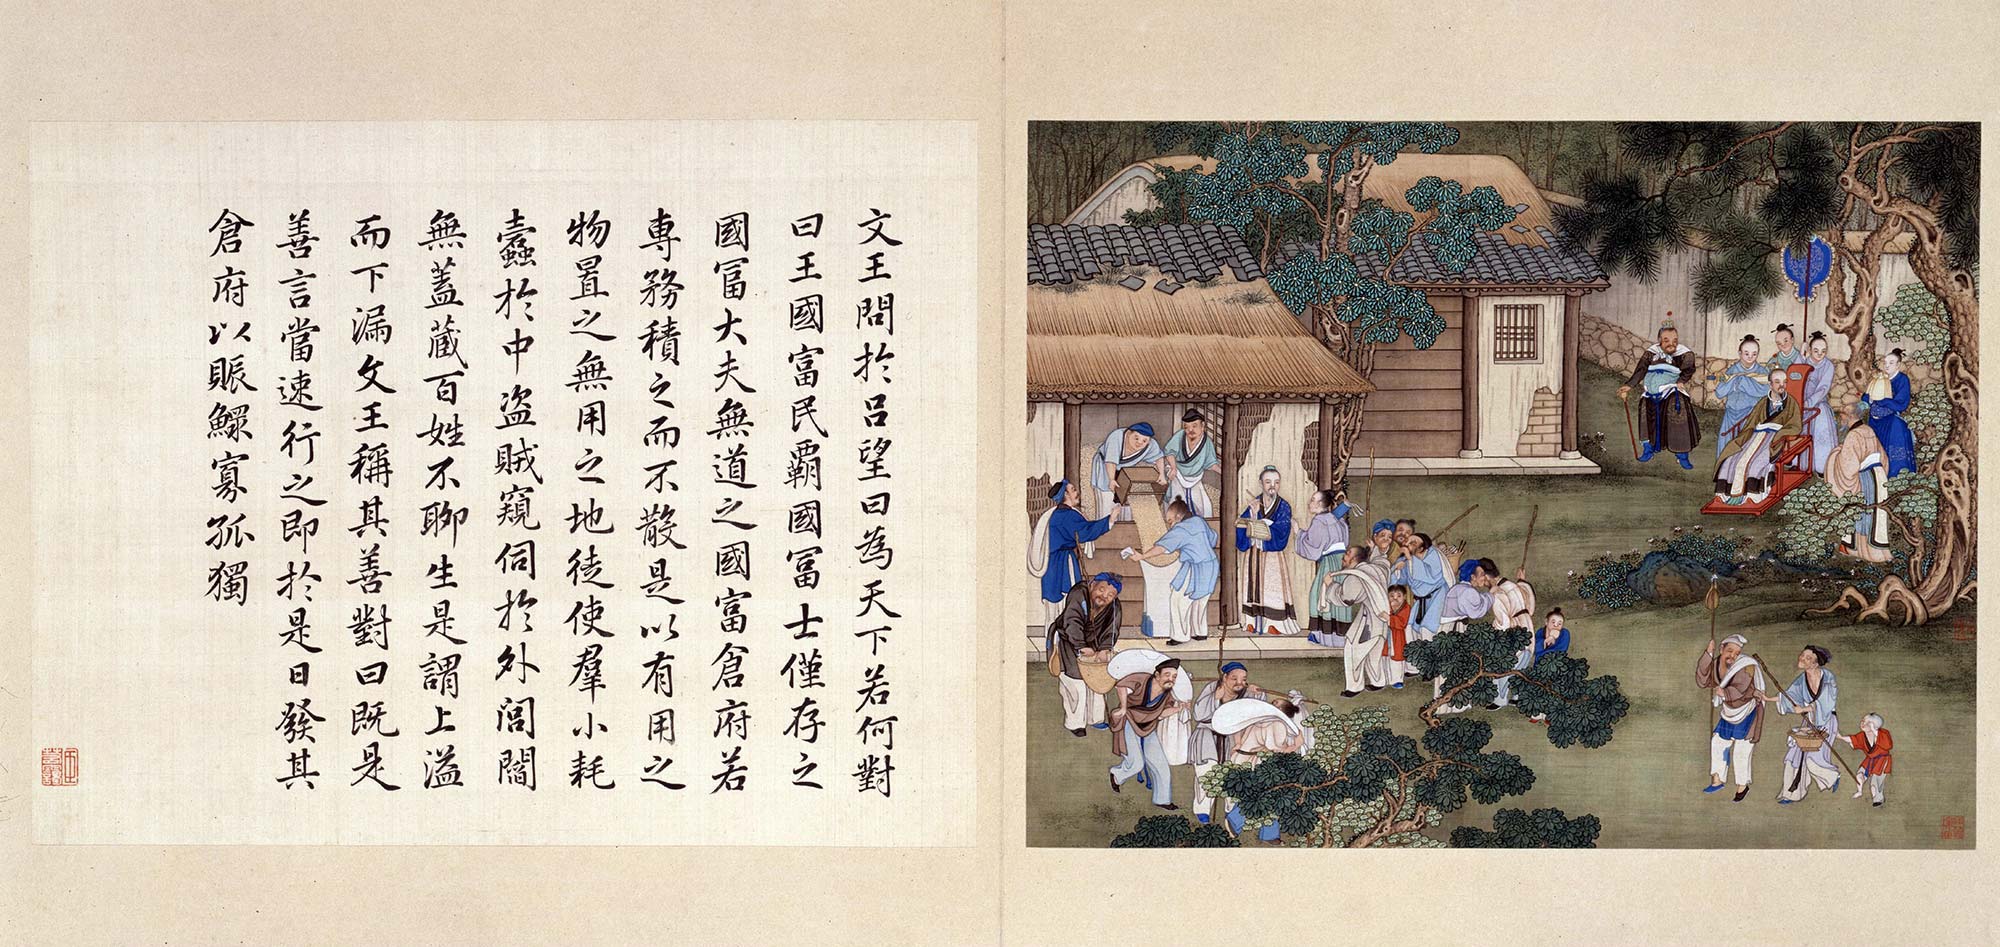 文王問於呂望曰為天下若何對
曰王國富民霸國冨士僅存之
國冨大夫無道之國富倉府若
專務積之而不散是以有用之
物置之無用之地徒使羣小耗
蠹於中盗賊窺伺於外閭閻
無蓋藏百姓不聊生是謂上溢
而下漏文王稱其善對曰既是
善言當速行之即於是日發其
倉府以賑鰥寡孤獨